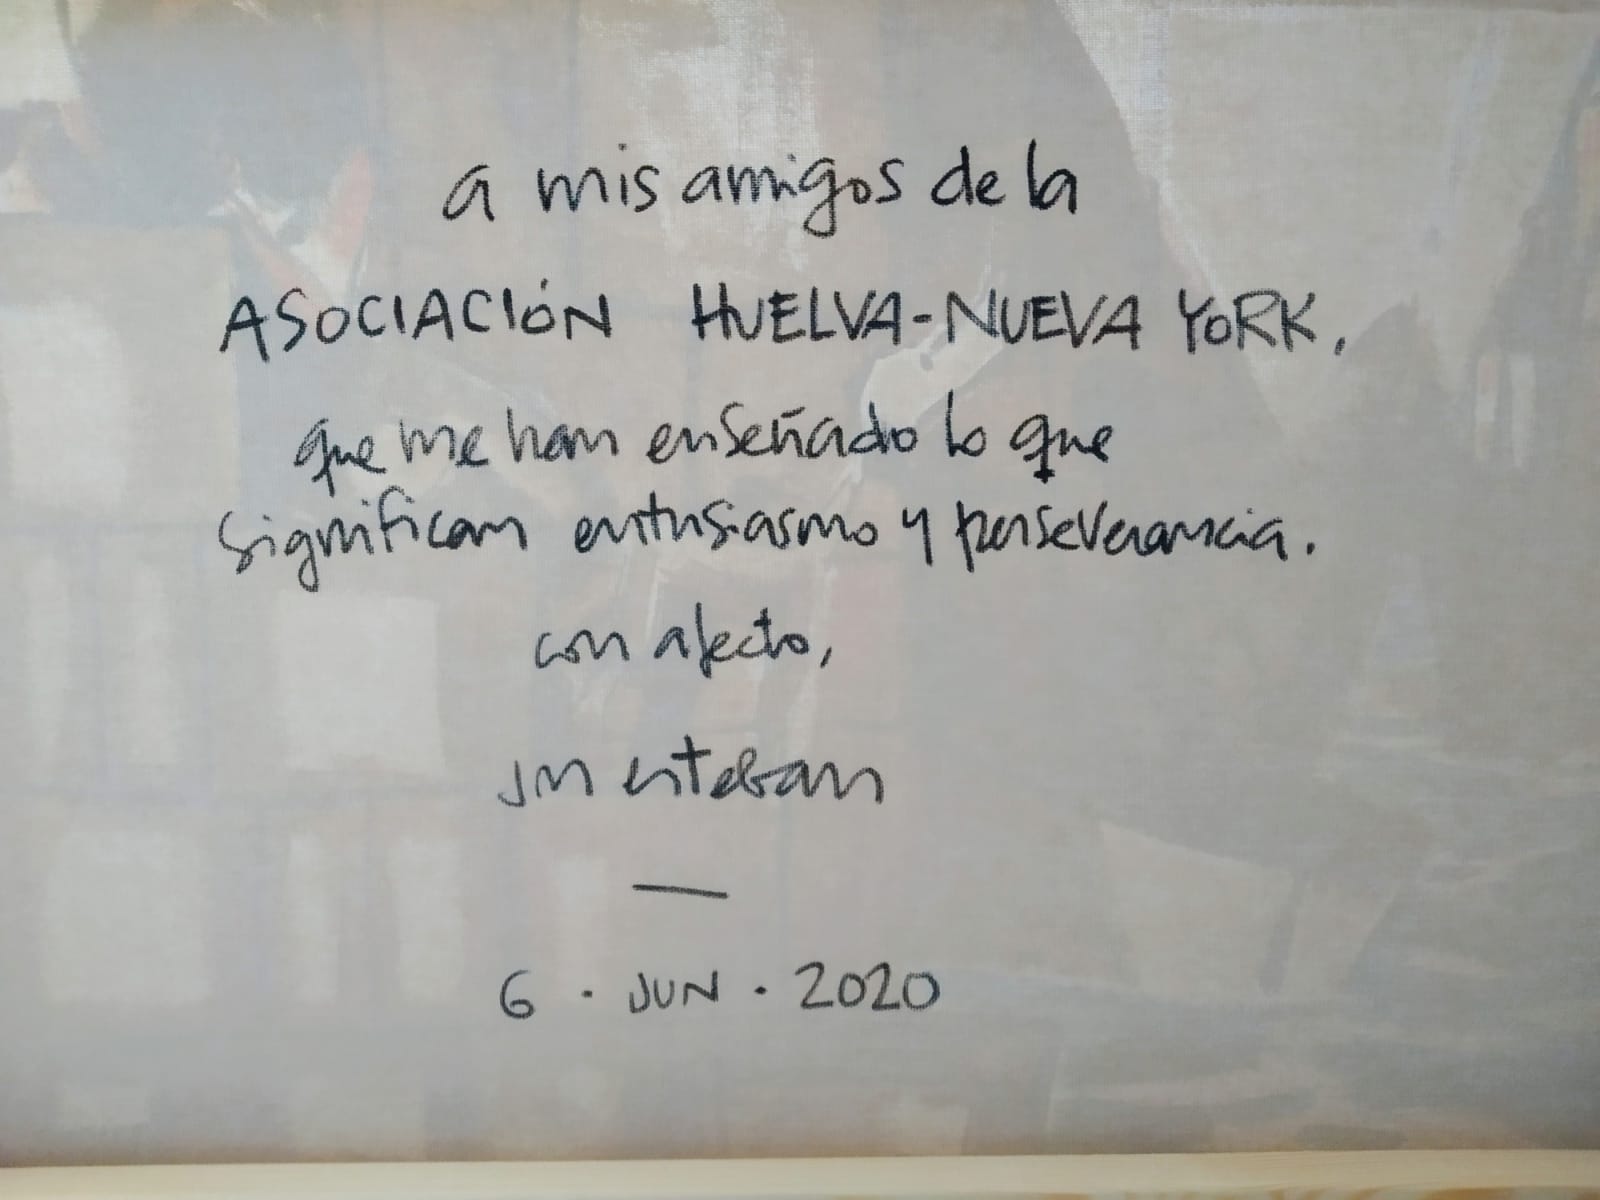 a mis amigos de la
ASOCIACIÓN HUELVA-NUEVA YORK,
que me han enseñado lo que
significan entusiasmo y perseverancia.
con afecto,
JM esteban
—
6 · JUN · 2020